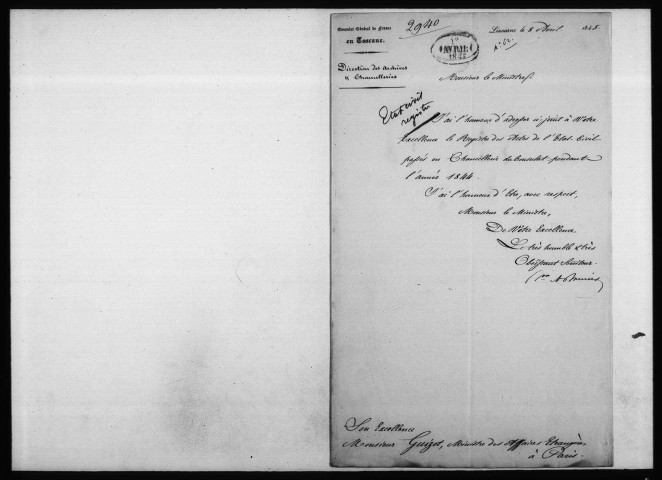 Consulat Général de France
en Toscane.
Direction des Archives
& Chancelleries
2940
AVRIL
Livourne le 8 Avril 1845.
N° 62.
Monsieur le Ministre,
Etat civil
registre
J'ai l'honneur d'adresser ci-joint à Votre
Excellence le Registre des Actes de l'Etat-Civil
passés en Chancellerie du Consulat pendant
l'année 1844.
J'ai l'honneur d'Etre, avec respect,
Monsieur le Ministre,
De Votre Excellence
Le très humble & très
Obéissant Serviteur
Son Excellence
Monsieur Guizot, Ministre des Affaires Etrangères
à Paris.